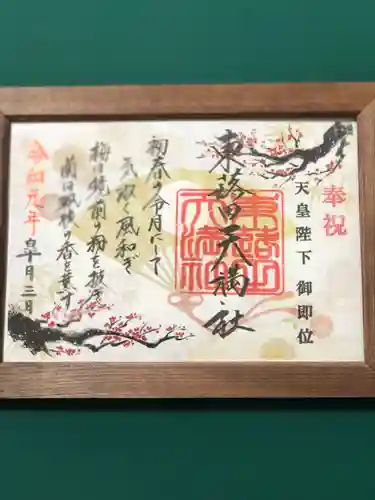 奉祝
天皇陛下御即位
東蕗田天満社
東蕗田
天満社
初春の令月にして
気淑く風和ぎ
梅は鏡前の粉を披き
蘭は珮後の香を薫す
令和元年
皐月三日